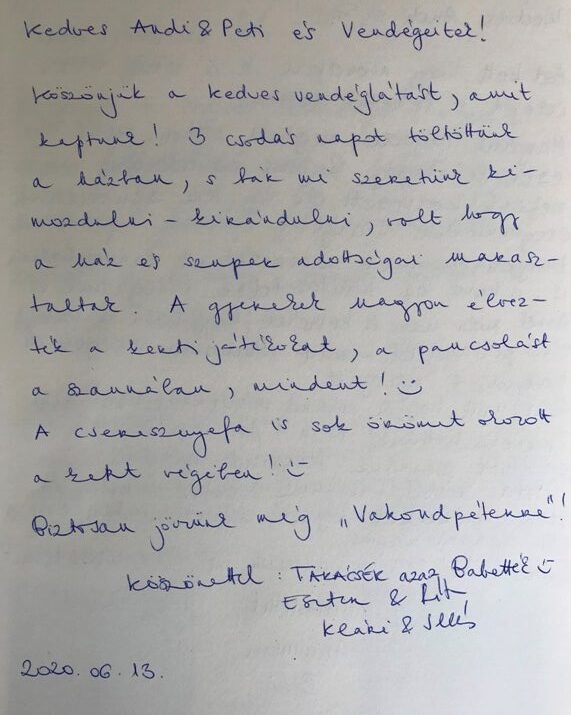 Kedves Andi & Peti és Vendégeitek!
Köszönjük a kedves vendéglátást, amit
kaptunk! 3 csodás napot töltöttünk
a házban, s bár mi szeretünk ki-
mozdulni - kirándulni, volt hogy
a ház és szuper adottságai marasz-
taltak. A gyerekek nagyon élvez-
ték a kerti játékokat, a pancsolást
a szaunában, mindent! :)
A cseresznyefa is sok örömet okozott
a kert végében! :)
Biztosan jövünk még „Vakondpéterre"!
Köszönettel : TAKÁCSÉK azaz Babették :)
Eszter &
Klári & Illés
2020. 06. 13.